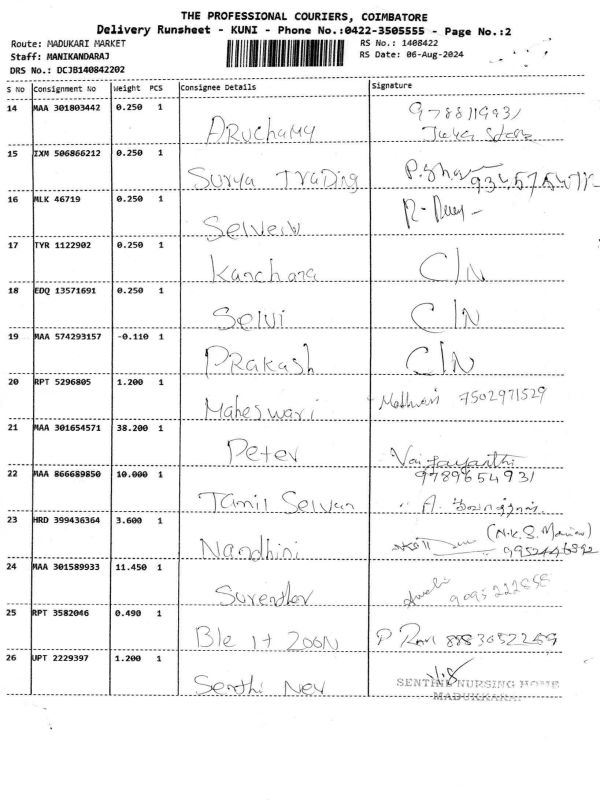 THE PROFESSIONAL COURIERS, COIMBATORE
Delivery Runsheet - KUNI - Phone No.:0422-3505555 - Page No.:2
Route: MADUKARI MARKET RS No.: 1408422
Staff: MANIKANDARAJ RS Date: 06-Aug-2024
DRS No.: DCJB140842202
S No Consignment No Weight PCS Consignee Details Signature
14 MAA 301803442 0.250 1
ARUCHAMY
15 IXM 506866212 0.250 1
Surya Trading
16 MLK 46719 0.250 1
17 TYR 1122902 0.250 1
Kanchana C/N
18 EDQ 13571691 0.250 1
Selvi C/N
19 MAA 574293157 -0.110 1
PRAKASH C/N
20 RPT 5296805 1.200 1
Maheswari 7502971529
21 MAA 301654571 38.200 1
Peter Vaijayanthi
22 MAA 866689850 10.000 1 9789654931
Tamil Selvan
23 HRD 399436364 3.600 1
Nandhini
24 MAA 301589933 11.450 1
9095222858
25 RPT 3582046 0.490 1
Ble It ZOON
26 UPT 2229397 1.200 1
NURSING HOME
MADUKKARAI